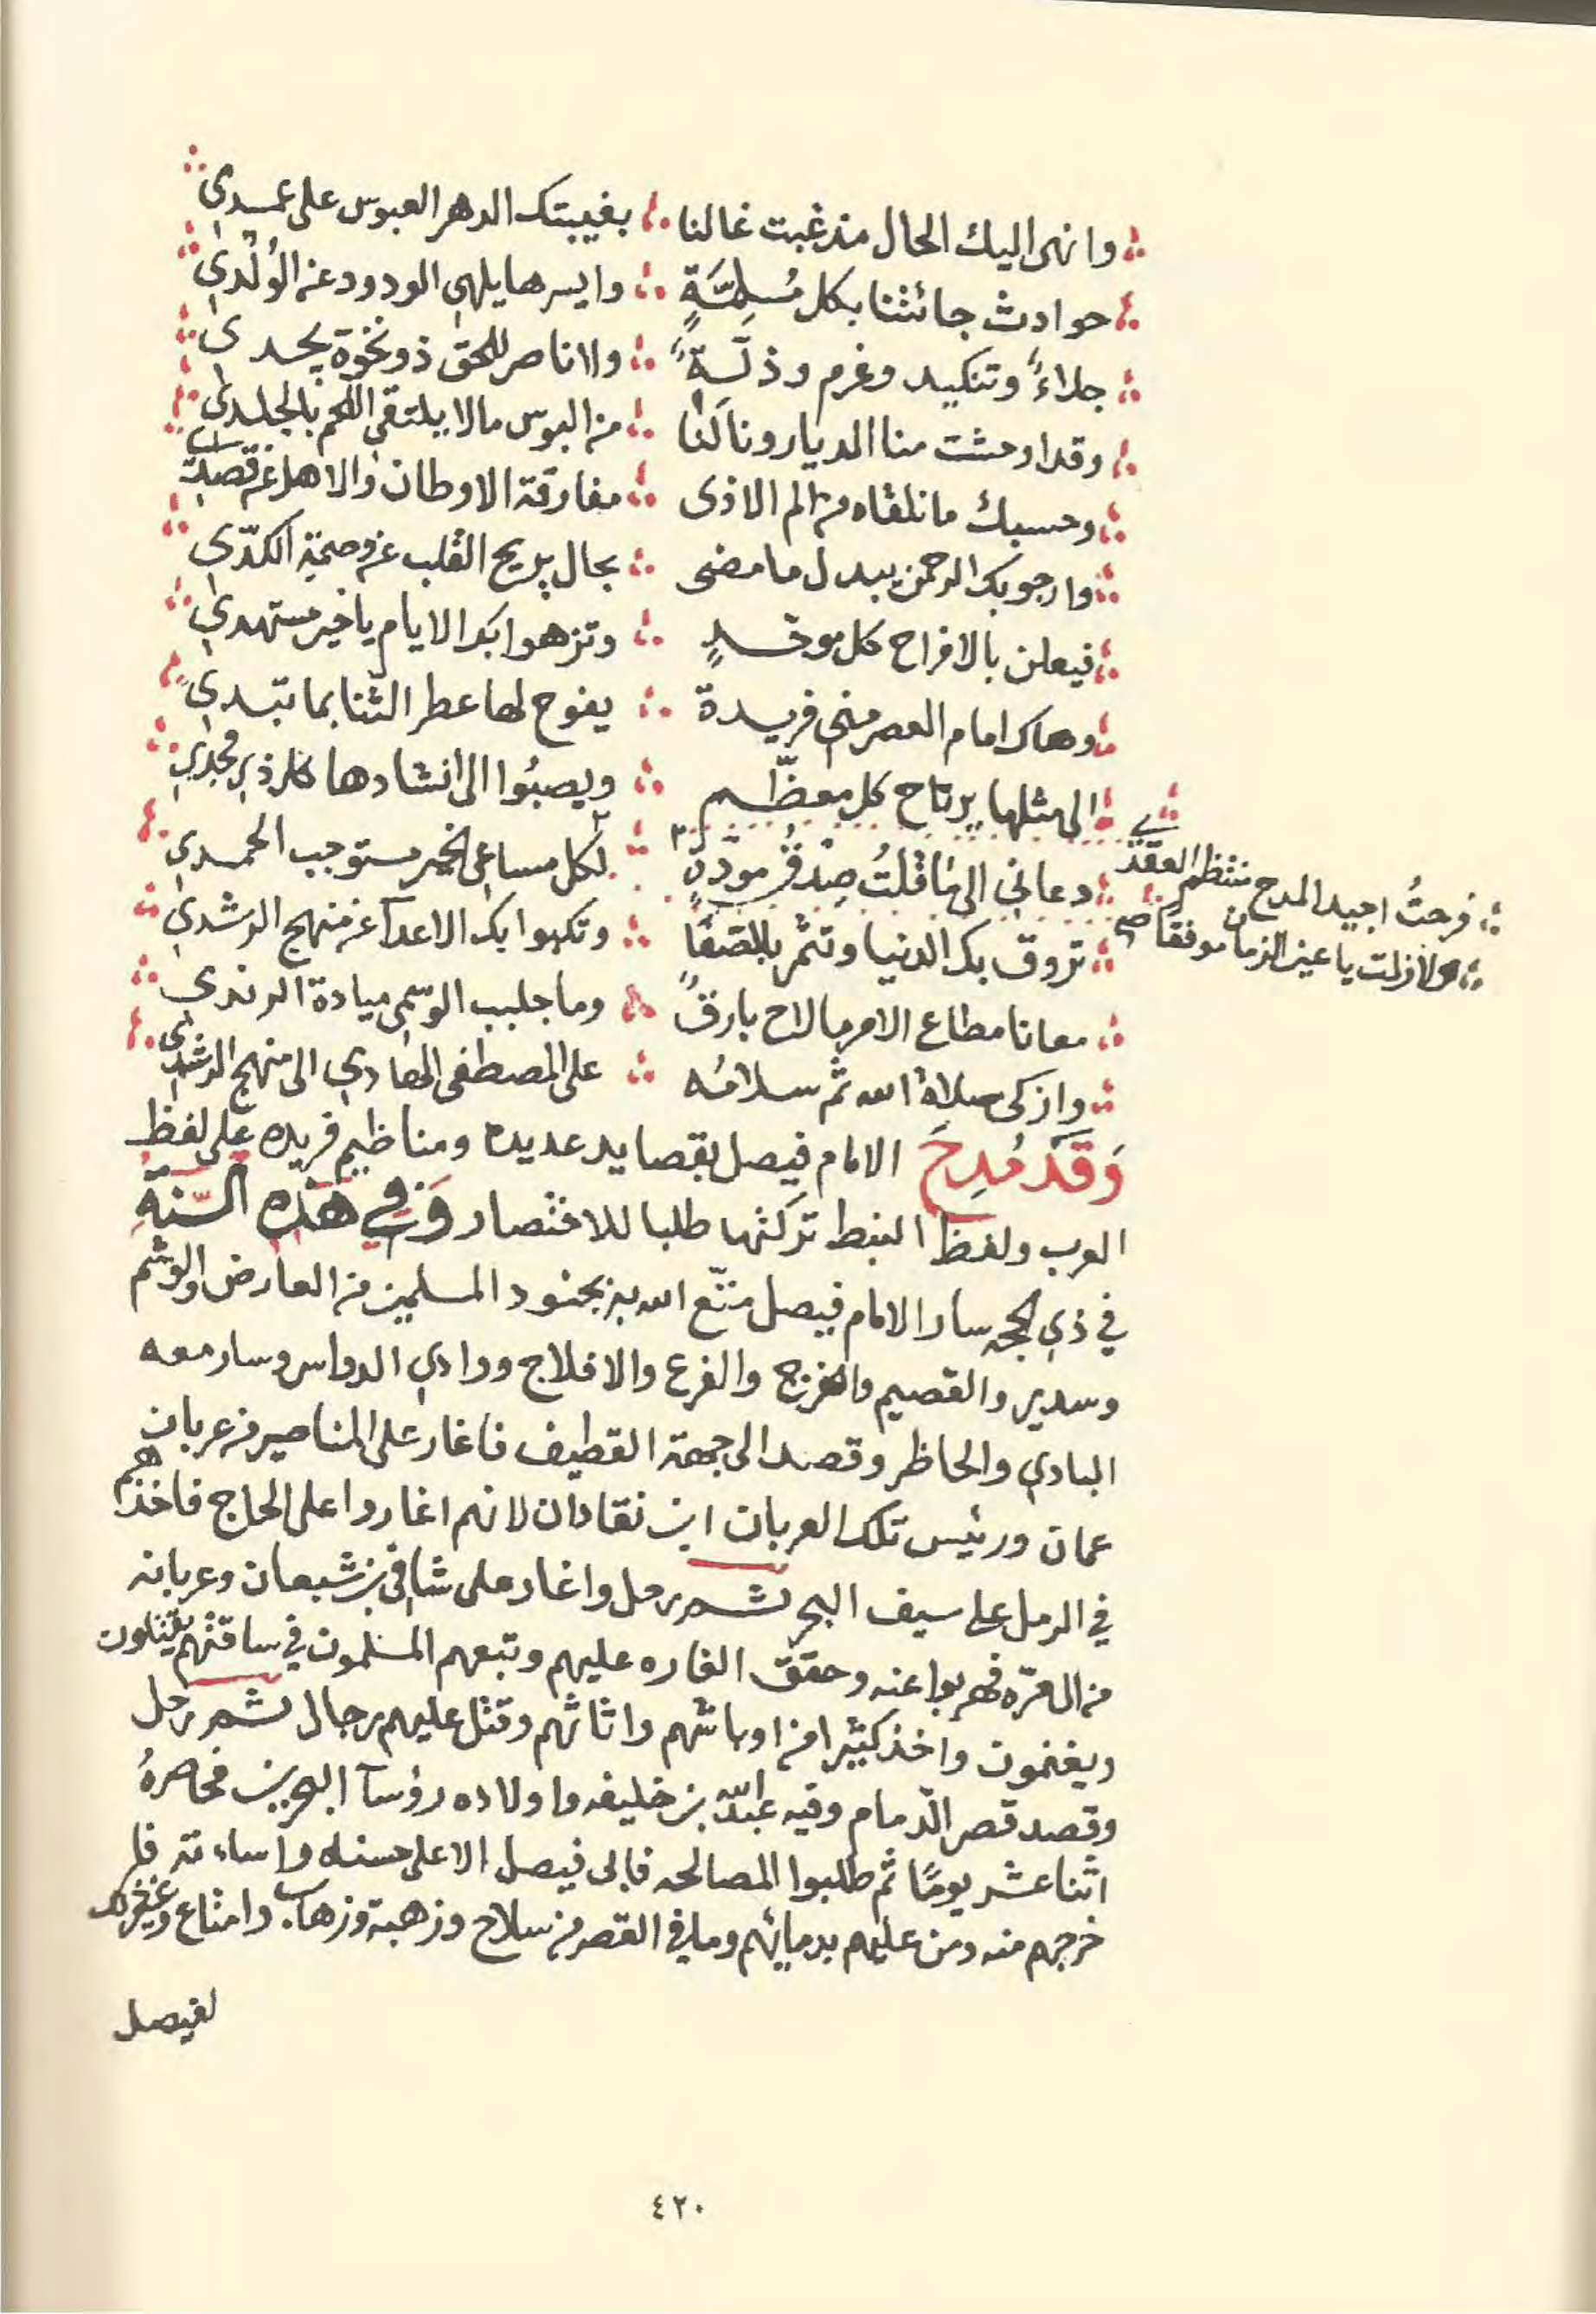 وانهى اليك الحال مذ غبت غالنا بغيبتك الدهر العبوس على عمدي
حوادث جائتنا بكل مُسِلمَّةٍ وايسرها يلهي الودود عن الوُلْدي
جلاءً وتنكيد وغرم وذلّةً ولا ناصر للحق ذو نخوة يجدي
وقد اوحشت منا الديار ونالنا من البوس مالا يلتقي اللحم بالجلدي
وحسبك ما نلقاه من الم الاذى مفارقة الاوطان والاهل عن قصدي
وارجو بك الرحمن يبدل ما مضى بحال يريح القلب عن وصمة الكدّي
فيعلن بالافراح كل موحدٍ وتزهوا بك الايام يا خير مستهدي
وهاك امام العصر مني فريدة يفوح لها عطر الثنا بما تبّدي
الى مثلها يرتاح كل معظّم ويصبُوا الى انشادها كل ذي مجدي
دعاني الى ما قلتُ صِدْقُ مودّةٍ لكل مساعي الخير مستوجب الحمدي
فرحتُ اجيد المدح منتظم العقد ي
ولا زلت يا عين الزمان موفقًا صح
تروق بك الدنيا وتثمر بالصّفًا وتكبوا بك الاعدآ عن منهج الرشدي
معانا مطاع الامر ما لاح بارقً وما جلبب الوسمى ميادة الرندي
وازكى صلاة الله ثم سلامُه على المصطفى الهادي الى منهج الرشدي
وَقَدْ مُدِحَ الامام فيصل بقصايد عديده ومناظيم فريده على لفظ
العرب ولفظ النبط تركتها طلبا للاختصار وَفِي هَذِه السَّنةِ
في ذي الحجه سار الامام فيصل متّع الله به بجنود المسلمين من العارض والوشم
وسدير والقصيم والخرج والفرع والافلاج ووادي الدواسر وسار معه
البادي والحاظر وقصد الى جهة القطيف فاغار على المناصير من عربان
عمان ورئيس تلك العربان ابن نقادان لانهم اغاروا على الحاج فاخذهم
في الرمل على سيف البحر ثم رحل واغار على شافي بن شبعان وعربانه
من ال مرّه فهربوا عنه وحقق الغاره عليهم وتبعهم المسلمون في ساقتهم يقتلون
ويغنمون واخذ كثيرا من اوباشهم واثاثهم وقتل عليهم رجال ثم رحل
وقصد قصر الدّمام وفيه عبدالله بن خليفه واولاده رؤسآ البحرين فحاصرهُ
اثنا عشر يومًا ثم طلبوا المصالحه فابى فيصل الا على حسنه واساءته فا
خرجهم منه ومن عليهم بدمائهم وما في القصر من سلاح وزهبة وزهاب وامتاع وغير ذلك
لفيصل
٤٢٠